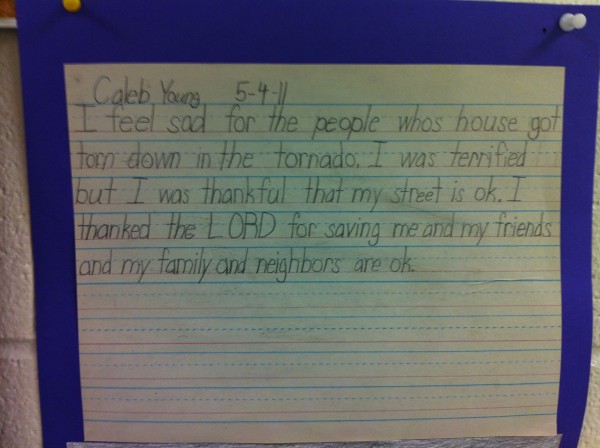 Caleb Young 5-4-11
I feel sad for the people whos house got
torn down in the tornado. I was terrified
but I was thankful that my street is ok. I
thanked the LORD for saving me and my friends
and my family and neighbors are ok.